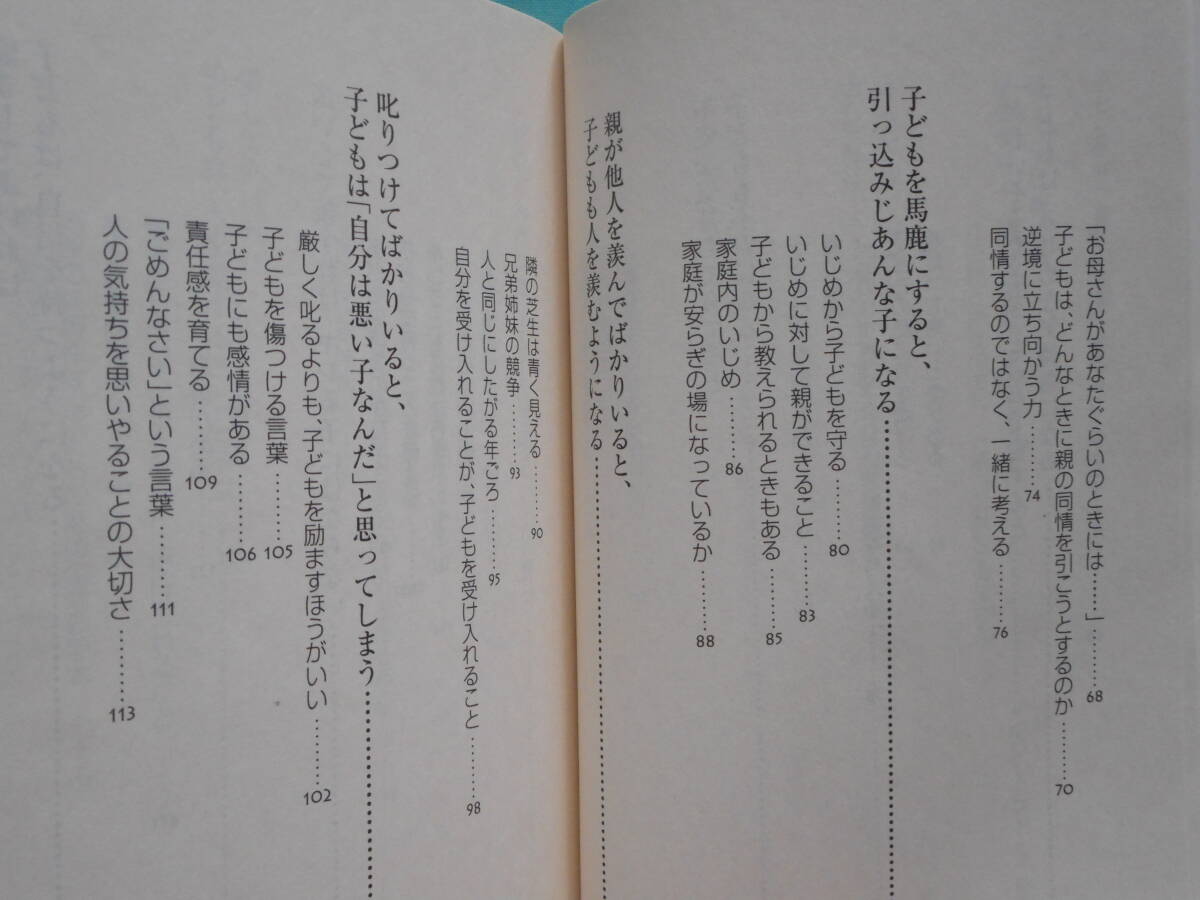 「お母さんがあなたぐらいのときには……」………68
子どもは、どんなときに親の同情を引こうとするのか………70
逆境に立ち向かう力………74
同情するのではなく、一緒に考える………76
子どもを馬鹿にすると、
引っ込みじあんな子になる………
いじめから子どもを守る………80
いじめに対して親ができること………83
子どもから教えられるときもある………85
家庭内のいじめ………86
家庭が安らぎの場になっているか………88
親が他人を羨んでばかりいると、
子どもも人を羨むようになる………
隣の芝生は青く見える………90
兄弟姉妹の競争………93
人と同じにしたがる年ごろ………95
自分を受け入れることが、子どもを受け入れること………98
叱りつけてばかりいると、
子どもは「自分は悪い子なんだ」と思ってしまう………
厳しく叱るよりも、子どもを励ますほうがいい………102
子どもを傷つける言葉………105
子どもにも感情がある………106
責任感を育てる………109
「ごめんなさい」という言葉………111
人の気持ちを思いやることの大切さ………113